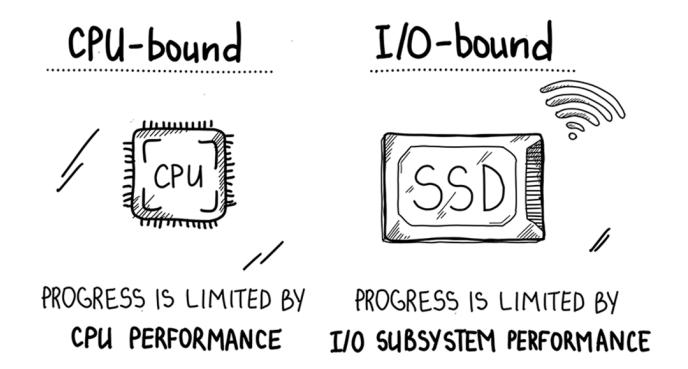 CPU-bound
CPU
PROGRESS IS LIMITED BY
CPU PERFORMANCE
I/O-bound
SSD
PROGRESS IS LIMITED BY
I/O SUBSYSTEM PERFORMANCE